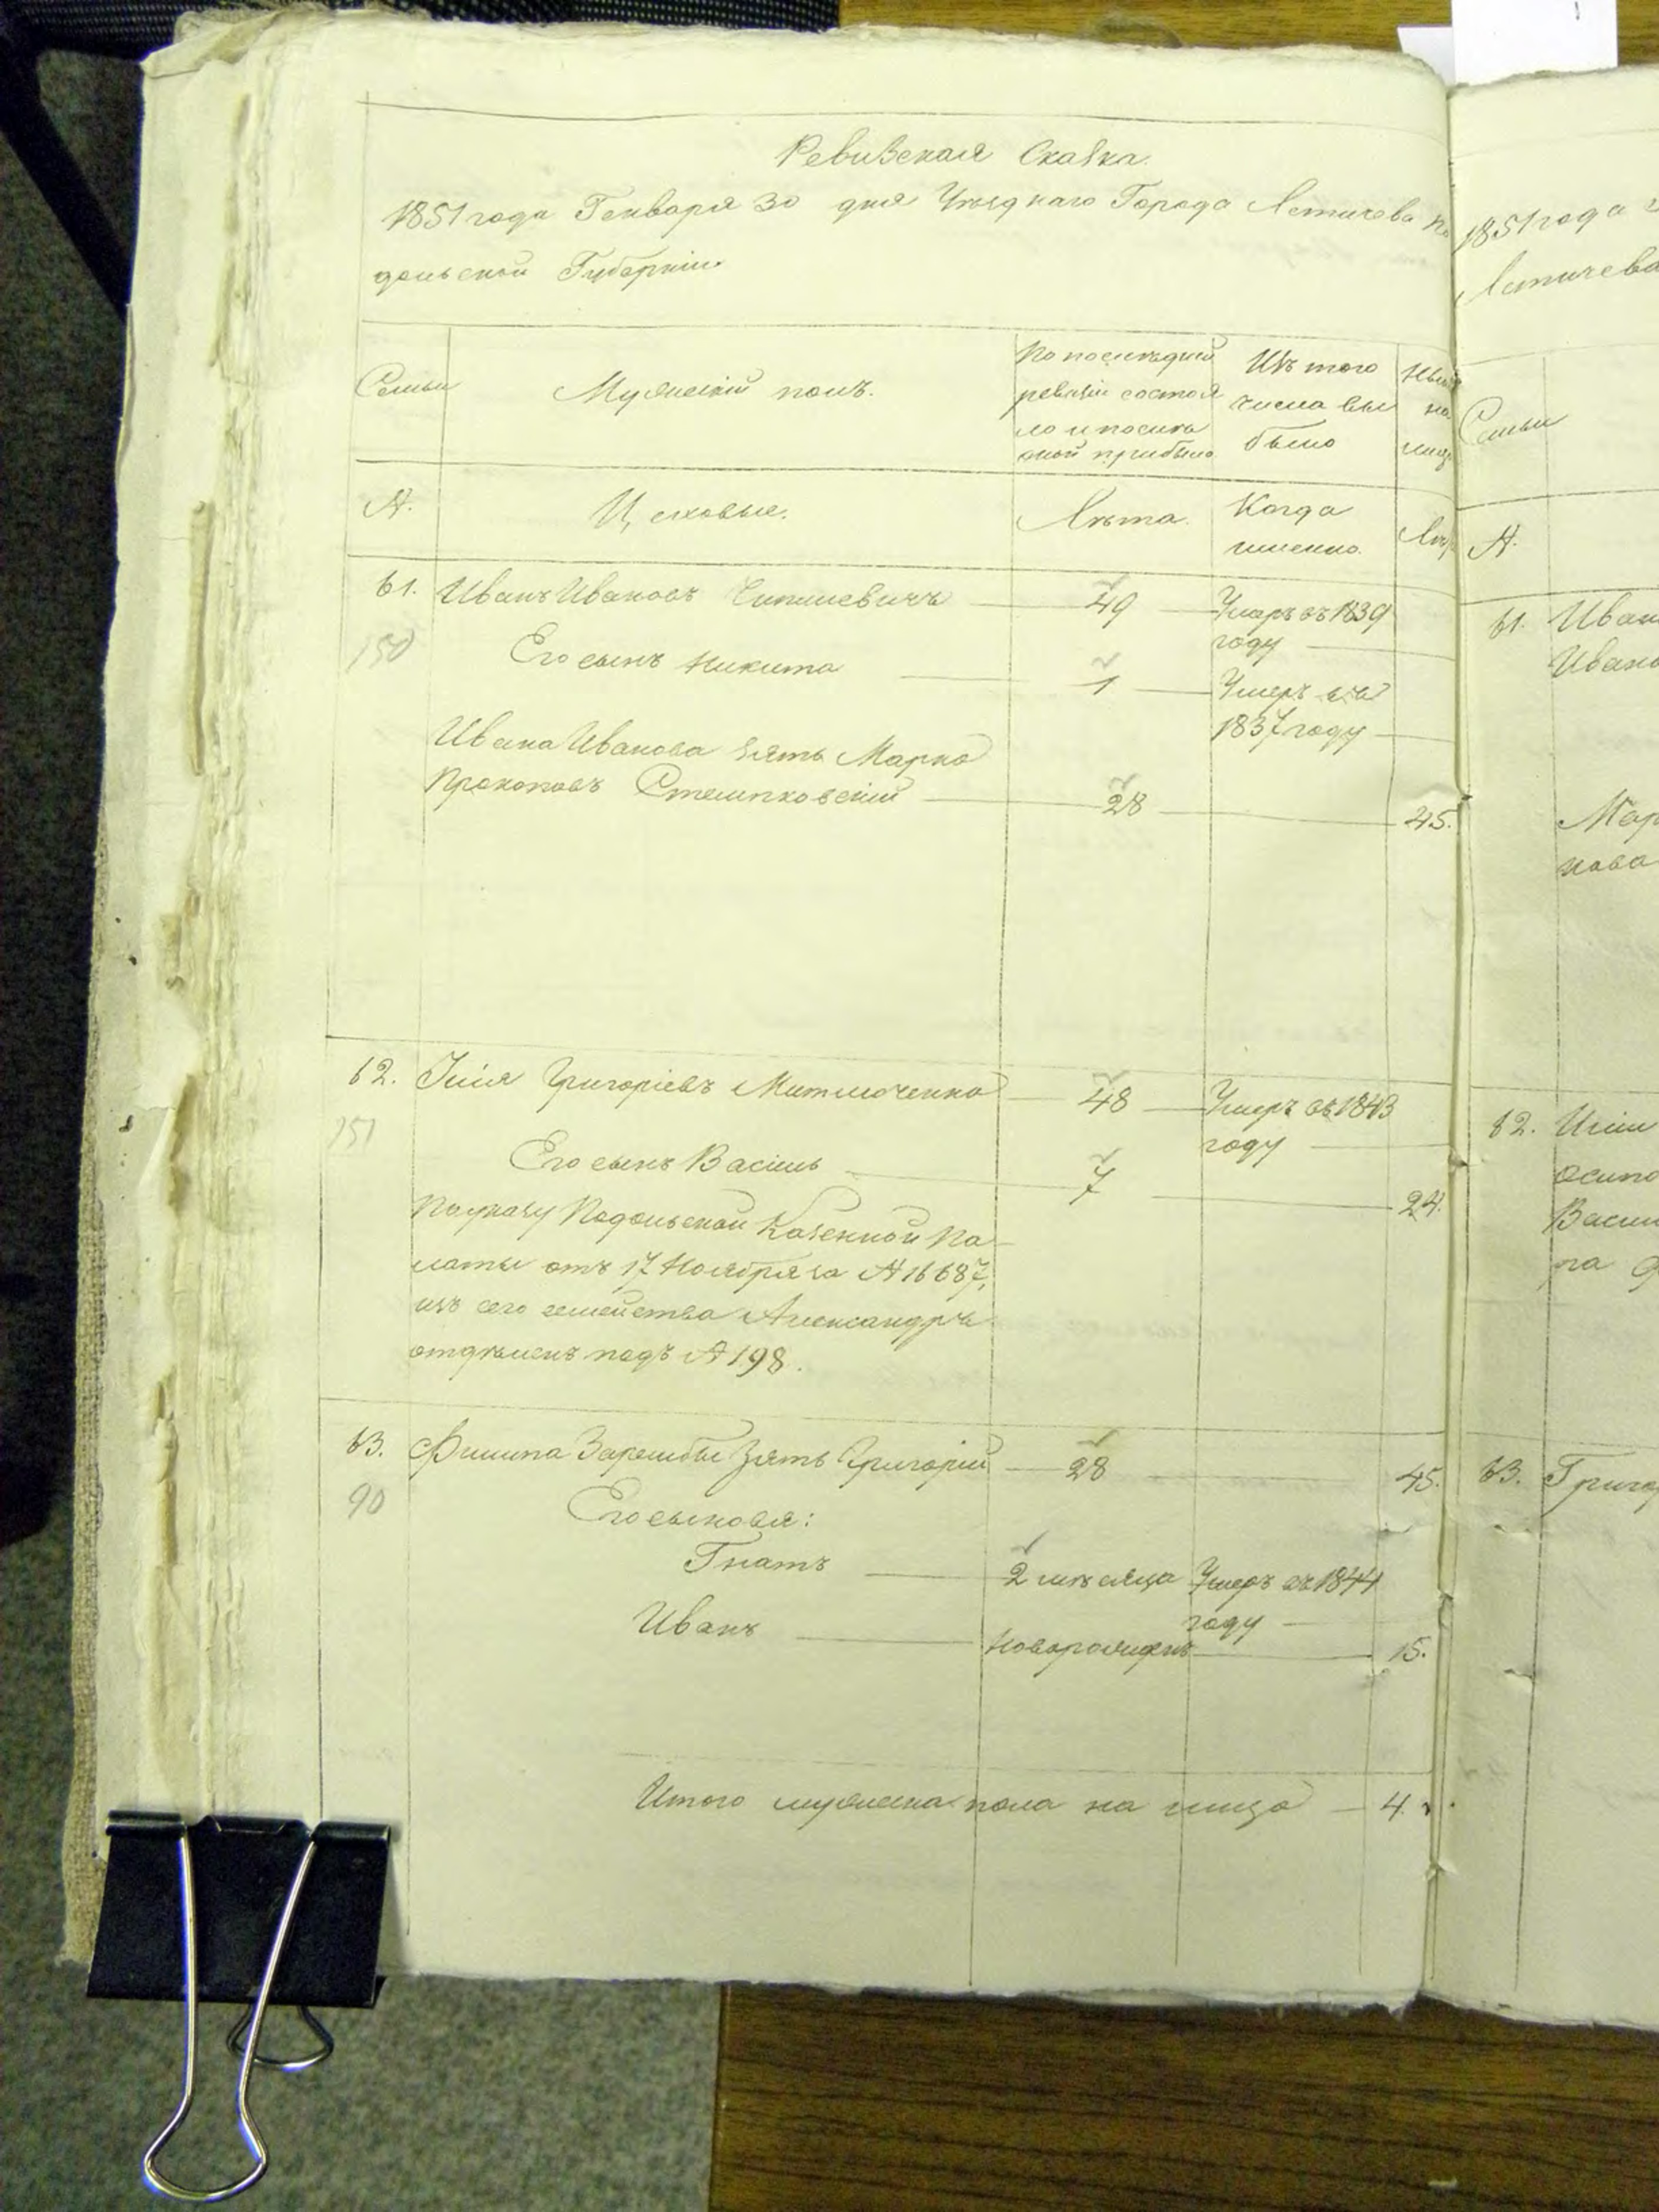 Ревизская Сказка.
1851 года Генваря 30 дня Уезднаго Города Летичева По
дольской Губерніи
Семьи
Мужескій полъ.
По последней
ревизіи состоя
ло и после
оной прибыло
Изъ того
числа вы
было
Ныне
на
лицо
№.
Цеховые.
Лета.
Когда
именно.
Лета
61. Иванъ Ивановъ — 49 — Умеръ въ 1839
году
150
Его сынъ Никита — 1 — Умеръ въ
1837 году
Ивана Иванова зять Марко
Прокоповъ Стемпковскій — 28 — 45.
62. Илія Григоріевъ Митлюченко — 48 — Умеръ въ 1843
году
151
Его сынъ Василь — 7 — 24.
По указу Подольской Казенной Па
латы отъ 17 Ноября за № 16687,
изъ сего семейства Александръ
отделенъ подъ № 198.
63. Филипа Зарембы Зять Григорій — 28 — 45.
90
Его сыновя:
Гнатъ — 2 месяца Умеръ въ 1844
году —
Иванъ — новорожденъ — 15.
Итого мужеска пола на лицо — 4.
1851 года
Летичева
Семьи
№.
61. Иван
Ивано
Мар
нова
62. Иліи
Осипо
Васил
на
63. Григор